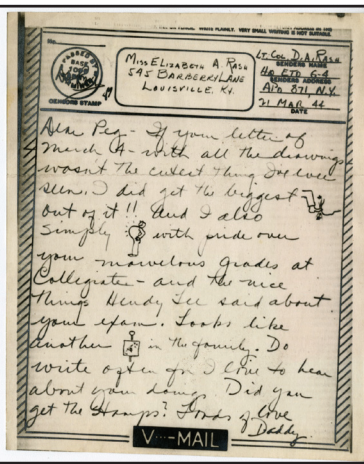 WRITE PLAINLY. VERY SMALL WRITING IS NOT SUITABLE.
No.
PASSED BY
BASE
ARMY
CENSORS STAMP
MISS ELIZABETH A. RASH
545 BARBERRY LANE
LOUISVILLE. KY.
LT. COL D.A. RASH
SENDERS NAME
HQ ETO G-4
SENDERS ADDRESS
APO 871 N.Y.
21 MAR 44
DATE
Dear Peg - If your letter of
March 4 - with all the drawings
wasn't the cutest thing I've ever
seen. I did get the biggest
out of it!! And I also
simply with pride over
your marvelous grades at
Collegiate - and the nice
things Hendy Lee said about
your exam. Looks like
another in the family. Do
write often for I love to hear
about your doing. Did you
get the stamps? Loads of love
Daddy.
V···-MAIL